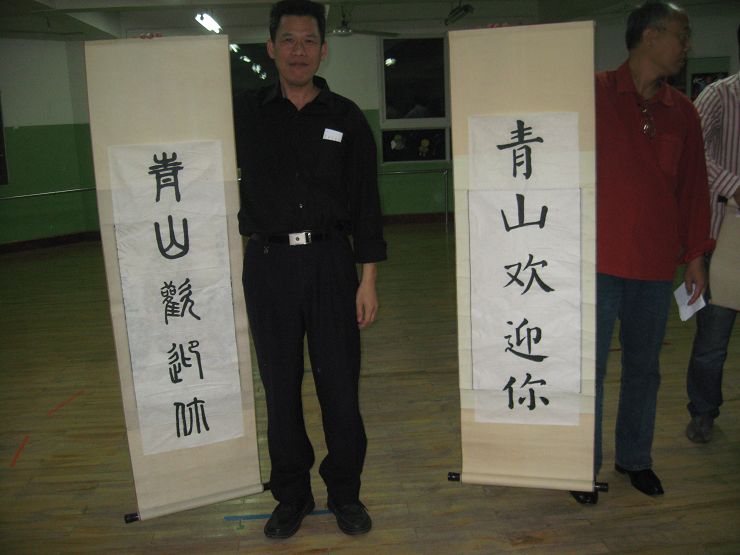 青山歡迎你
青山欢迎你